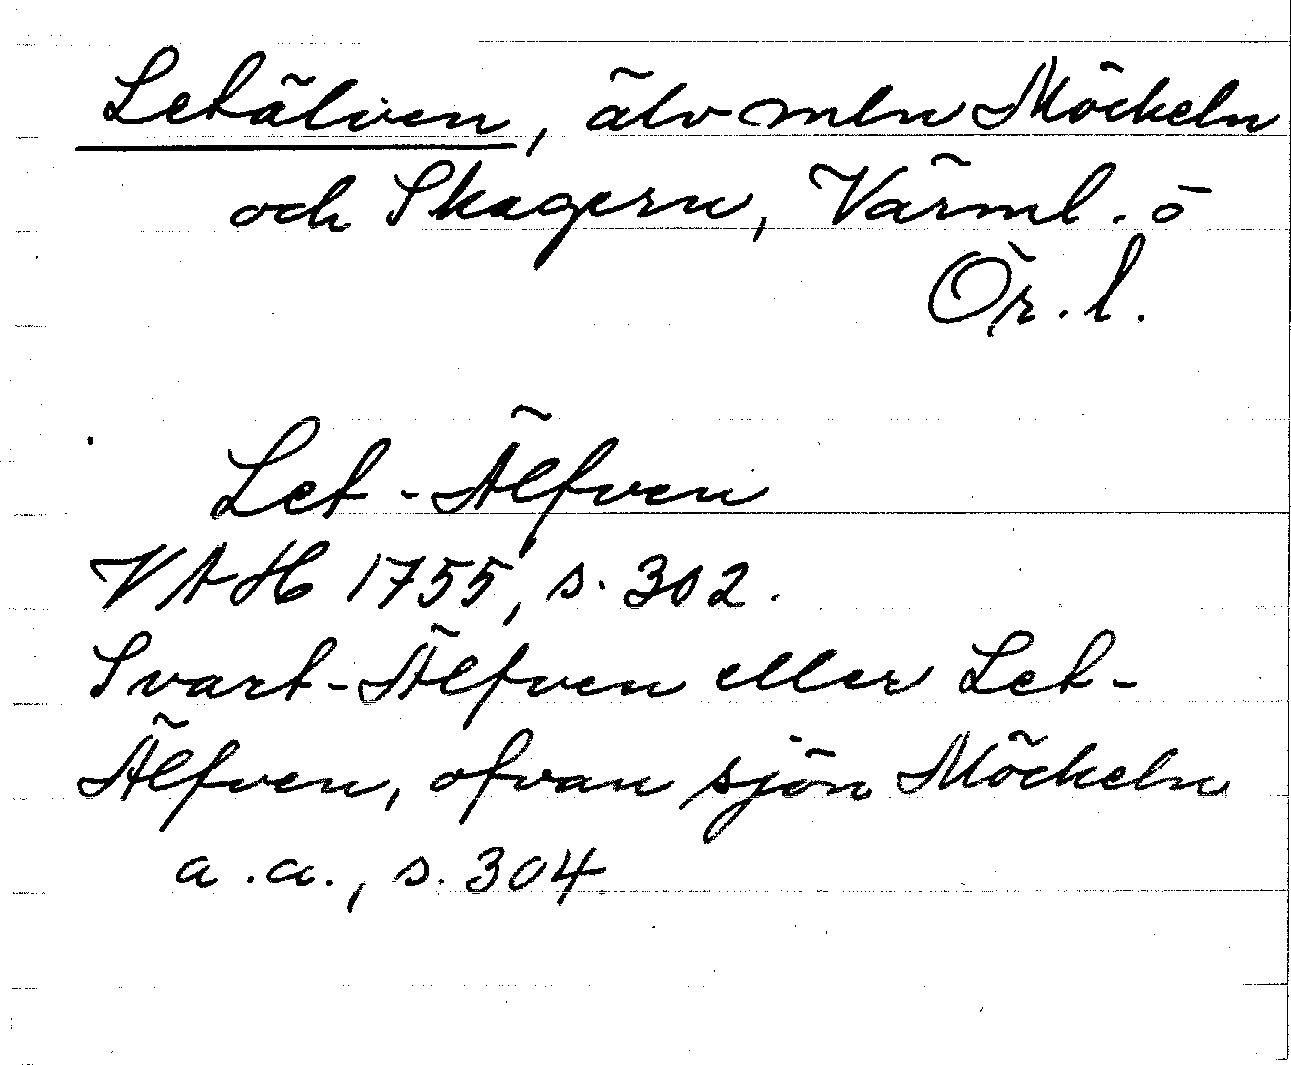 Letälven, älv mln Möckeln
och Skagern, Värml. o
Ör. l.
Let-Älfven
VAH 1755, s. 302.
Svart-Älfven eller Let-
Älfven, ofvan sjön Möckeln
a.a., s. 304